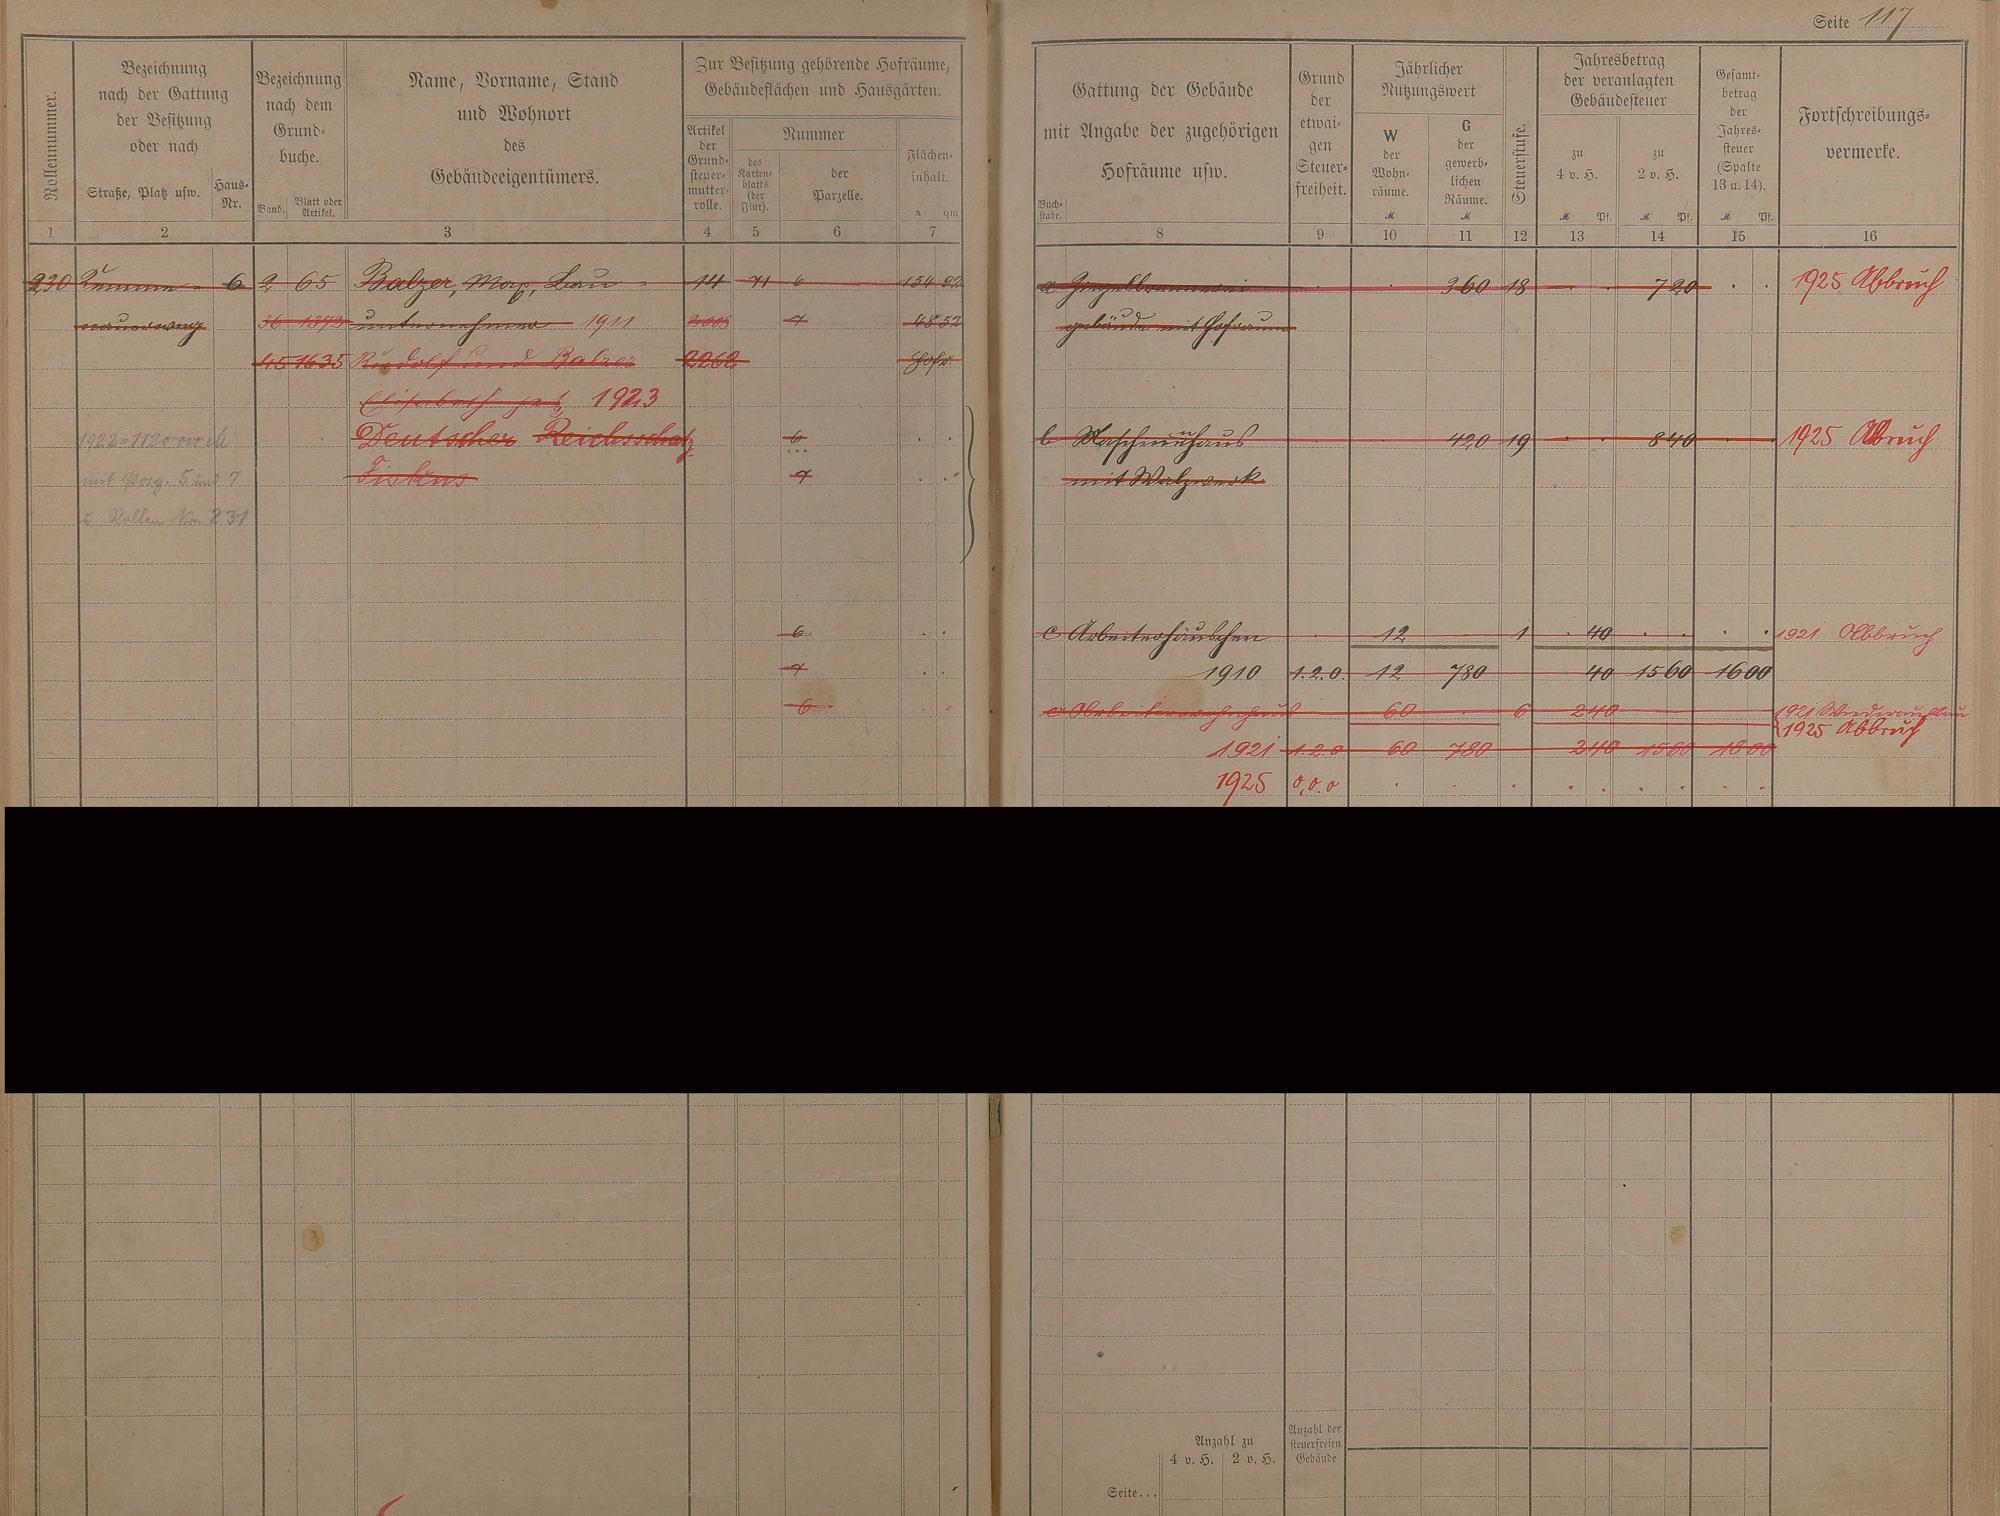 Seite 117
Rollennummer.
Bezeichnung
nach der Gattung
der Besitzung
oder nach
Straße, Platz usw.
Haus-
Nr.
Bezeichnung
nach dem
Grund-
buche.
Band.
Blatt oder
Artikel.
Name, Vorname, Stand
und Wohnort
des
Gebäudeeigentümers.
Zur Besitzung gehörende Hofräume,
Gebäudeflächen und Hausgärten.
Artikel
der
Grund-
steuer-
mutter-
rolle.
Nummer
des
Karten-
blatts
(der
Flur).
der
Parzelle.
Flächen-
inhalt.
a qm
1 2 3 4 5 6 7
230 6 2 65 Balzer, Max, Bau- 14 71 6 154 92
36 1373 unternehmer 1911 7 48 52
45 1635 Rudolf und Balzer 2262 Hofr.
Elisabeth 1923
1922 = Deutscher Reichsschatz 6
mit Parz. 5 und 7 Fiskus 7
u Rollen Nr. 231
6
7
6
Buch-
stabe.
Gattung der Gebäude
mit Angabe der zugehörigen
Hofräume usw.
Grund
der
etwai-
gen
Steuer-
freiheit.
Jährlicher
Nutzungswert
W
der
Wohn-
räume.
M
G
der
gewerb-
lichen
Räume.
M
Steuerstufe.
Jahresbetrag
der veranlagten
Gebäudesteuer
zu
4 v. H.
M Pf.
zu
2 v. H.
M Pf.
Gesamt-
betrag
der
Jahres-
steuer
(Spalte
13 u. 14).
M Pf.
Fortschreibungs-
vermerke.
8 9 10 11 12 13 14 15 16
a 360 18 7 20 1925 Abbruch
gebäude mit Hofraum
b Maschinenhaus 420 19 8 40 1925 Abbruch
mit Walzwerk
c Arbeiterhäuschen 12 1 40 1921 Abbruch
1910 1.2.0. 12 780 40 15 60 16 00
c Arbeiterwohnhaus 60 6 2 40 1921 Wiederaufbau
1925 Abbruch
1921 1.2.0 60 780 2 40 15 60 18 00
1925 0.0.0
Anzahl zu
4 v. H. 2 v. H.
Anzahl der
steuerfreien
Gebäude
Seite...